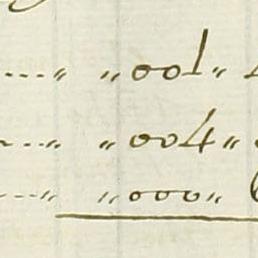 ---- " " 001 "
---- " " 004 "
---- " " 000 "